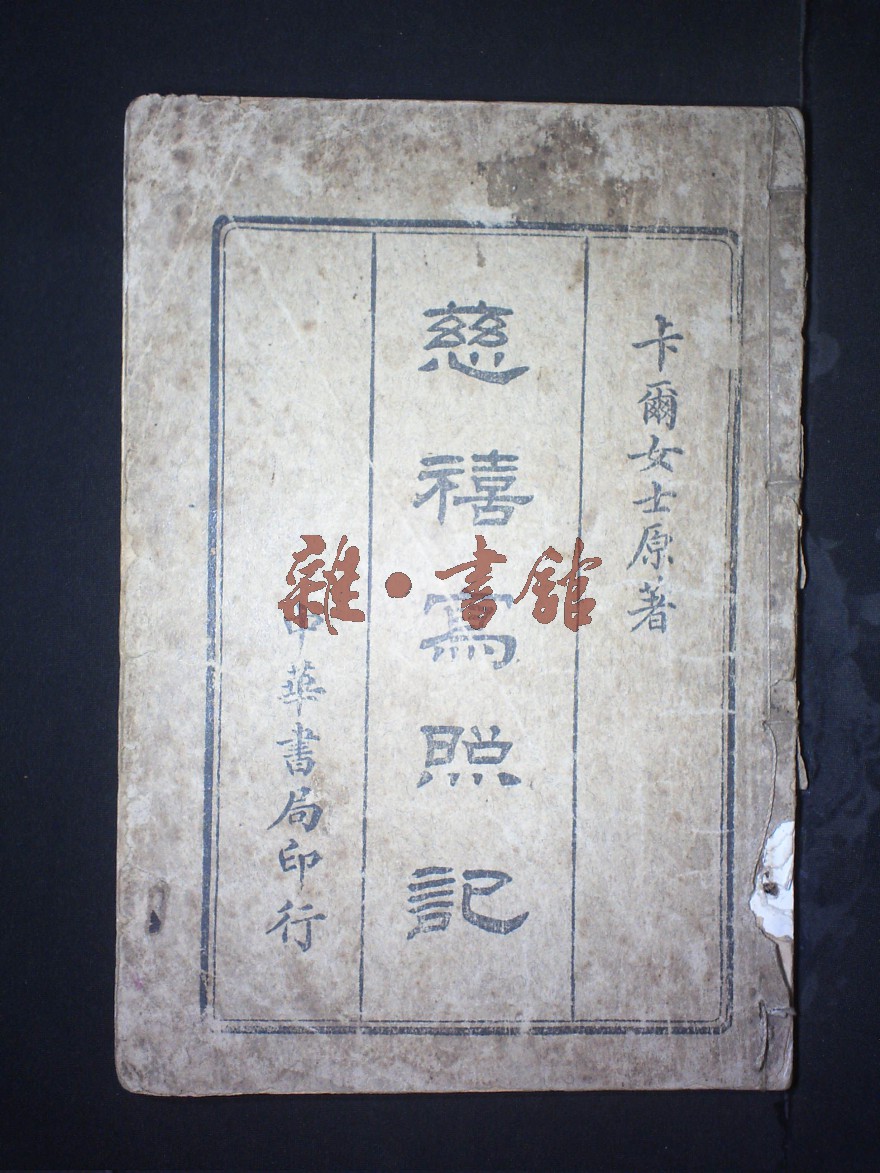 卡爾女士原著
慈禧寫照記
中華書局印行
雜·書館